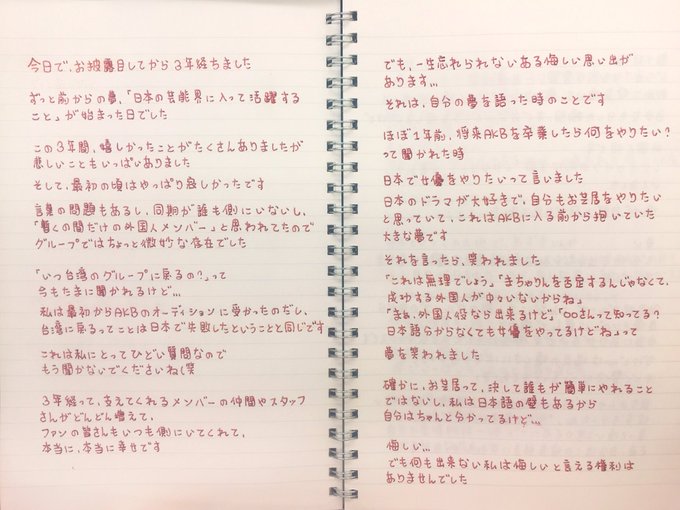 今日で、お披露目してから3年経ちました
ずっと前からの夢、「日本の芸能界に入って活躍する
こと」が始まった日でした
この3年間、嬉しかったことがたくさんありましたが
悲しいこともいっぱいありました
そして、最初の頃はやっぱり寂しかったです
言葉の問題もあるし、同期が誰も側にいないし、
「暫くの間だけの外国人メンバー」と思われてたので
グループではちょっと微妙な存在でした
「いつ台湾のグループに戻るの?」って
今もたまに聞かれるけど…
私は最初からAKBのオーディションに受かったのだし、
台湾に戻るってことは日本で失敗したということと同じです
これは私にとってひどい質問なので
もう聞かないでくださいね(笑
3年経って、支えてくれるメンバーの仲間やスタッフ
さんがどんどん増えて、
ファンの皆さんもいつも側にいてくれて、
本当に、本当に幸せです
でも、一生忘れられないある悔しい思い出が
あります…
それは、自分の夢を語った時のことです
ほぼ1年前、将来AKBを卒業したら何をやりたい?
って聞かれた時
日本で女優をやりたいって言いました
日本のドラマが大好きで、自分もお芝居をやりたい
と思っていて、これはAKBに入る前から抱いていた
大きな夢です
それを言ったら、笑われました
「これは無理でしょう」「まちゃりんを否定するんじゃなくて、
成功する外国人が中々いないからね」
「まぁ、外国人役なら出来るけど」「〇〇さんって知ってる?
日本語分からなくても女優をやってるけどね」って
夢を笑われました
確かに、お芝居って、決して誰もが簡単にやれること
ではないし、私は日本語の壁もあるから
自分はちゃんと分かってるけど…
悔しい…
でも何も出来ない私は悔しいと言える権利は
ありませんでした